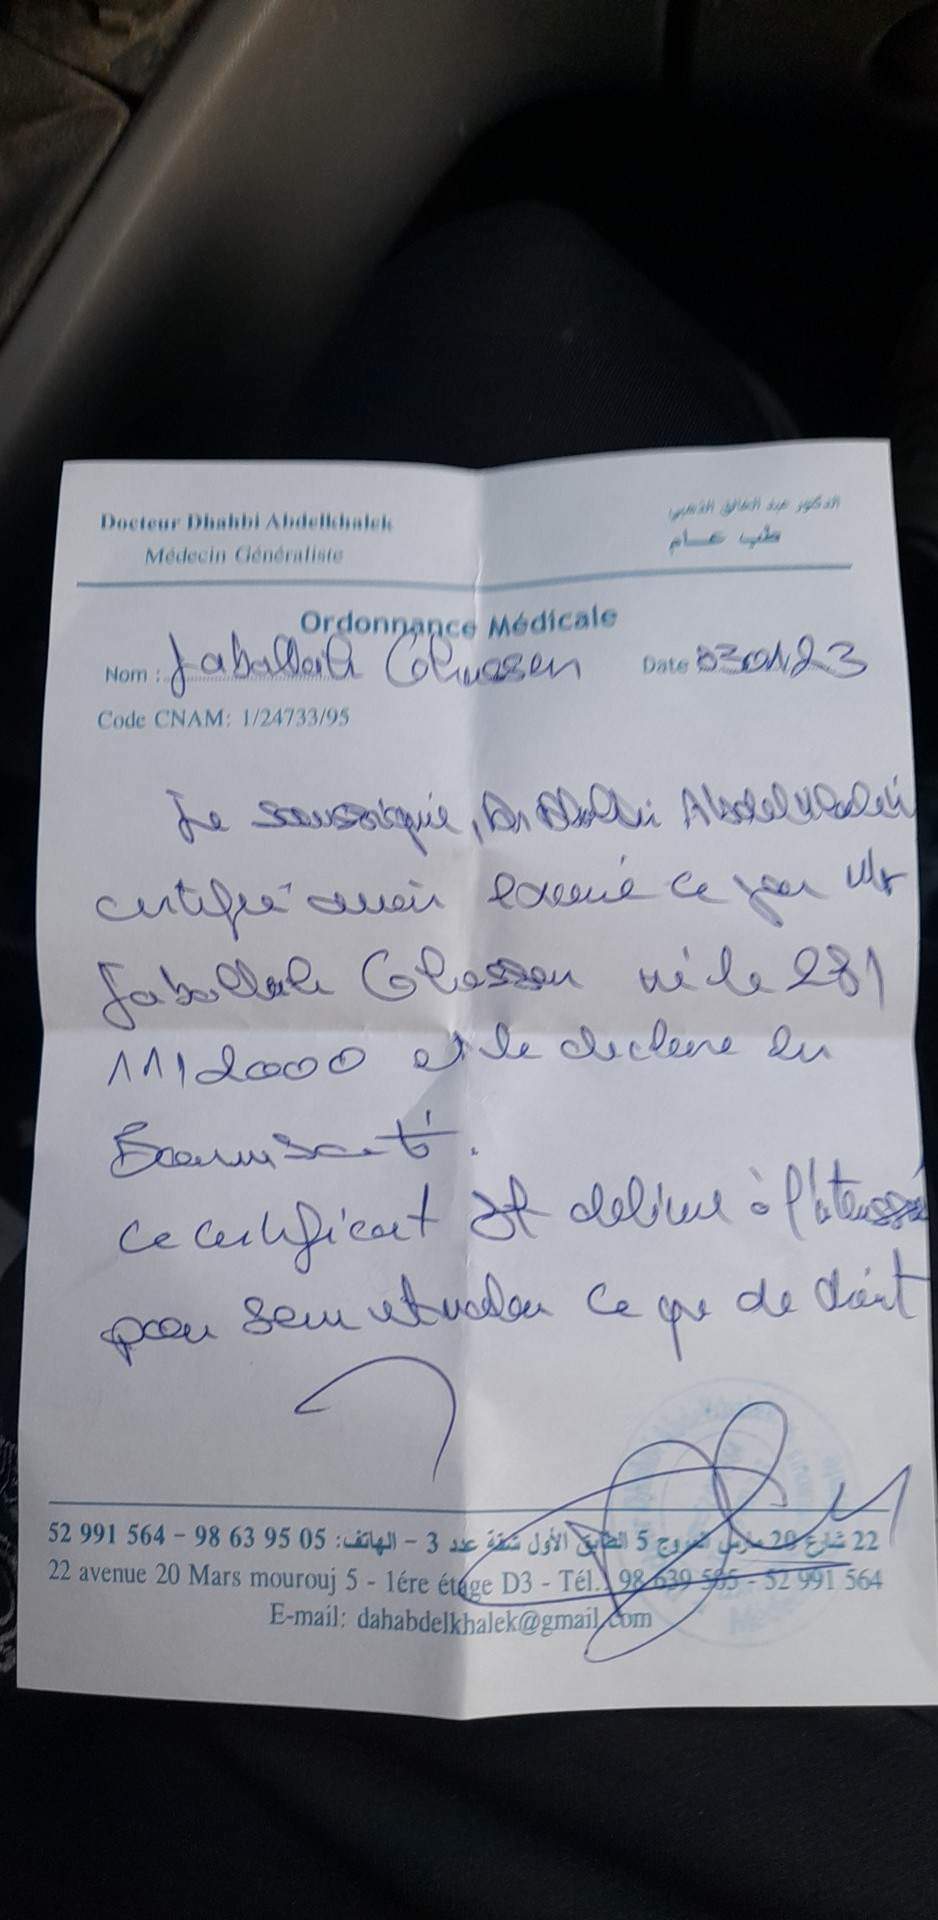 Docteur Dhahbi Abdelkhalek
الدكتور عبد الخالق الذهبي
Médecin Généraliste
طب عــام
Ordonnance Médicale
Nom : Jaballah Date 23
Code CNAM: 1/24733/95
Je soussigné, Dr Dhahbi Abdelkhalek
certifie avoir examiné ce jour Mr
Jaballah né le 28/
11/2000 et le déclare en
santé.
ce certificat est délivré à l'intéressé
pour servir et valoir ce que de droit
22 شارع 20 مارس المروج 5 الطابق الأول شقة عدد 3 – الهاتف: 05 95 63 98 – 564 991 52
22 avenue 20 Mars mourouj 5 - 1ére étage D3 - Tél.: 98 639 505 - 52 991 564
E-mail: dahabdelkhalek@gmail.com